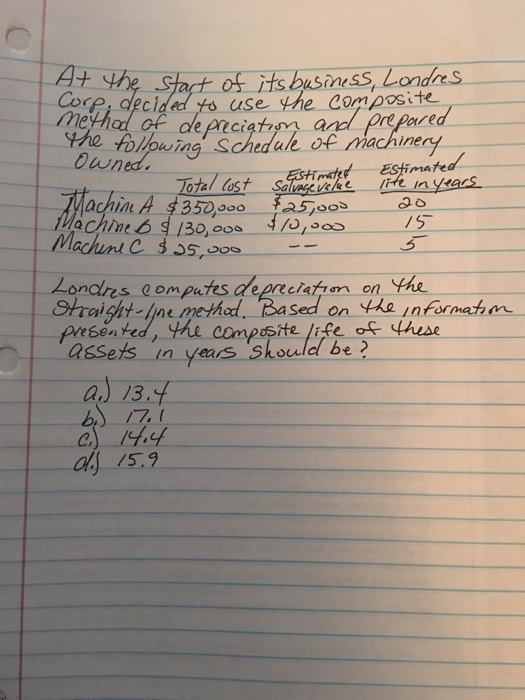 At the start of its business, Londres
Corp. decided to use the composite
method of depreciation and prepared
the following schedule of machinery
owned.
Total Cost Estimated Salvage value Estimated life in years
Machine A $350,000 $25,000 20
Machine B $130,000 $10,000 15
Machine C $25,000 -- 5
Londres computes depreciation on the
straight-line method. Based on the information
presented, the composite life of these
assets in years should be?
a.) 13.4
b.) 17.1
c.) 14.4
d.) 15.9